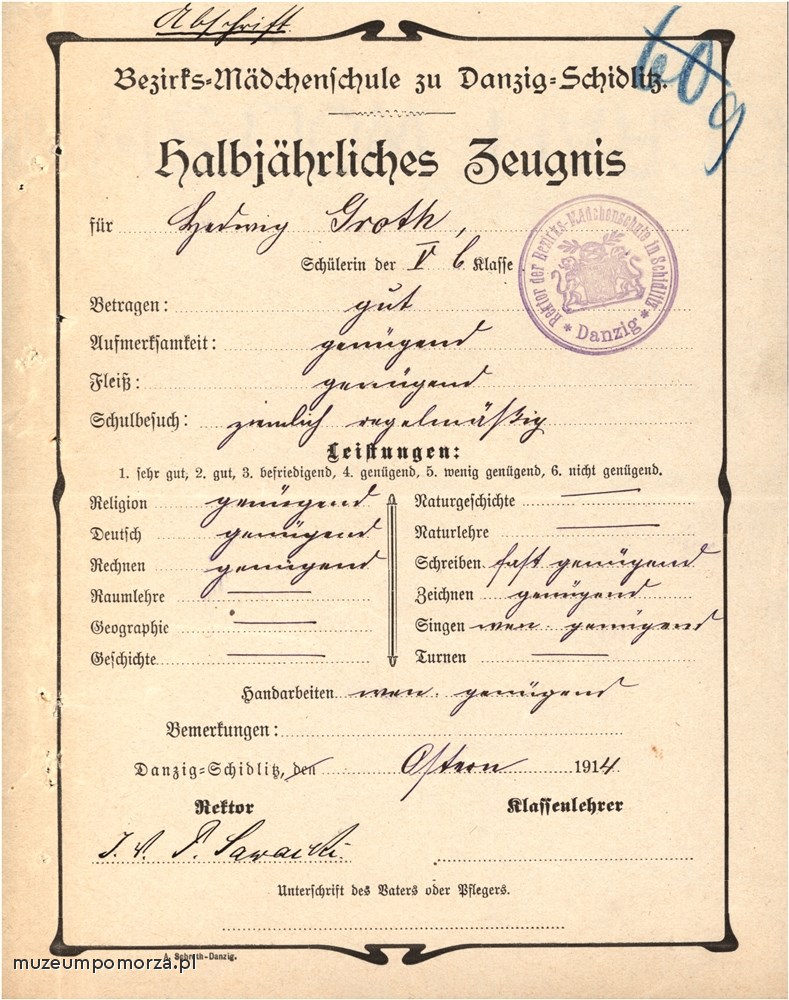 Abschrift.
609
Bezirks-Mädchenschule zu Danzig-Schidlitz.
Halbjährliches Zeugnis
für Hedwig Groth,
Schülerin der V b Klasse
Rektor der Bezirks-Mädchenschule in Schidlitz
* Danzig *
Betragen: gut
Aufmerksamkeit: genügend
Fleiß: genügend
Schulbesuch: ziemlich regelmäßig
Leistungen:
1. sehr gut, 2. gut, 3. befriedigend, 4. genügend, 5. wenig genügend, 6. nicht genügend.
Religion genügend
Deutsch genügend
Rechnen genügend
Raumlehre —
Geographie —
Geschichte —
Naturgeschichte —
Naturlehre —
Schreiben fast genügend
Zeichnen genügend
Singen wen. genügend
Turnen —
Handarbeiten wen. genügend
Bemerkungen:
Danzig-Schidlitz, den Ostern 1914
Rektor
Klassenlehrer
J. V. P. Sawatzki.
Unterschrift des Vaters oder Pflegers.
A. Schroth-Danzig.
muzeumpomorza.pl